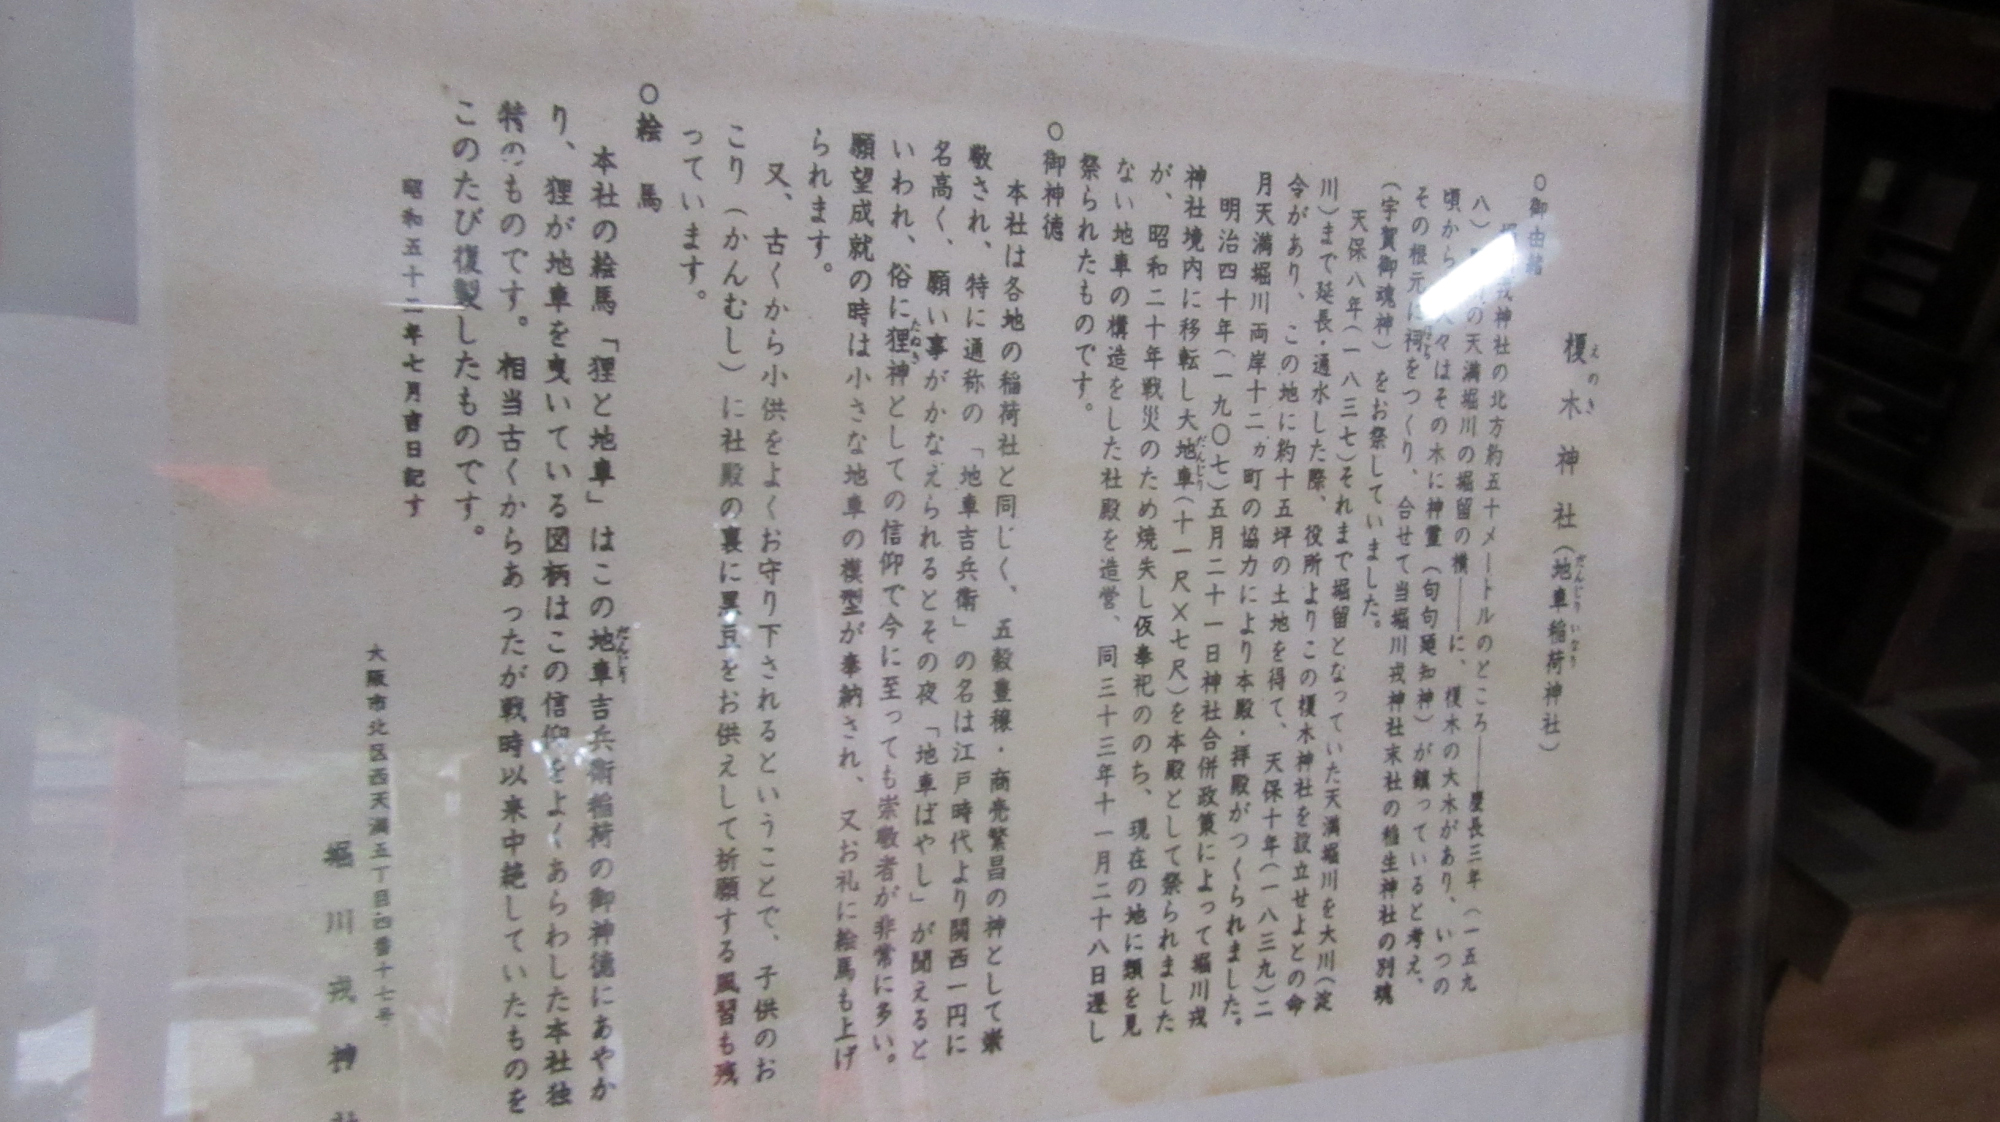 榎木神社（地車稲荷神社）
えのき
だんじりいなり
○御由緒
戎神社の北方約五十メートルのところ――慶長三年（一五九
八）の天満堀川の堀留の横――に、榎木の大木があり、いつの
頃から々はその木に神霊（句句廼知神）が鎮っていると考え、
その根元に祠をつくり、合せて当堀川戎神社末社の稲生神社の別魂
（宇賀御魂神）をお祭していました。
天保八年（一八三七）それまで堀留となっていた天満堀川を大川（淀
川）まで延長・通水した際、役所よりこの榎木神社を設立せよとの命
令があり、この地に約十五坪の土地を得て、天保十年（一八三九）二
月天満堀川両岸十二ヵ町の協力により本殿・拝殿がつくられました。
明治四十年（一九〇七）五月二十一日神社合併政策によって堀川戎
神社境内に移転し大地車（十一尺×七尺）を本殿として祭られました
だんじり
が、昭和二十年戦災のため焼失し仮奉祀ののち、現在の地に類を見
ない地車の構造をした社殿を造営、同三十三年十一月二十八日遷し
祭られたものです。
○御神徳
本社は各地の稲荷社と同じく、五穀豊穣・商売繁昌の神として崇
敬され、特に通称の「地車吉兵衛」の名は江戸時代より関西一円に
名高く、願い事がかなえられるとその夜「地車ばやし」が聞えると
いわれ、俗に狸神としての信仰で今に至っても崇敬者が非常に多い。
たぬき
願望成就の時は小さな地車の模型が奉納され、又お礼に絵馬も上げ
られます。
又、古くから小供をよくお守り下されるということで、子供のお
こり（かんむし）に社殿の裏に黒豆をお供えして祈願する風習も残
っています。
○絵馬
本社の絵馬「狸と地車」はこの地車吉兵衛稲荷の御神徳にあやか
だんじり
り、狸が地車を曳いている図柄はこの信仰をよくあらわした本社独
特のものです。相当古くからあったが戦時以来中絶していたものを
このたび復製したものです。
昭和五十二年七月吉日記す
大阪市北区西天満五丁目四番十七号
堀川戎神社